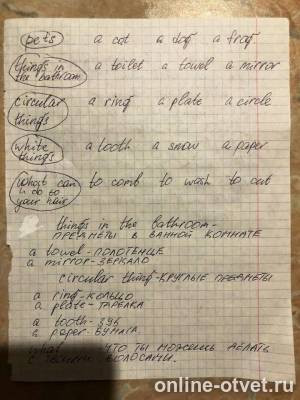 pets a cat a dog a frog.
things in the bathroom a toilet a towel a mirror
circular things a ring a plate a circle
white things a tooth a snow a paper
What can u do to your hair to comb to wash to cut
things in the bathroom-
ПРЕДМЕТЫ В ВАННОЙ КОМНАТЕ
a towel-ПОЛОТЕНЦЕ
a mirror-ЗЕРКАЛО
circular thing-КРУГЛЫЕ ПРЕДМЕТЫ
a ring-КОЛЬЦО
a plate-ТАРЕЛКА
a tooth-ЗУБ
a paper-БУМАГА
what -ЧТО ТЫ МОЖЕШЬ ДЕЛАТЬ
С ТВОИМИ ВОЛОСАМИ.
online-otvet.ru